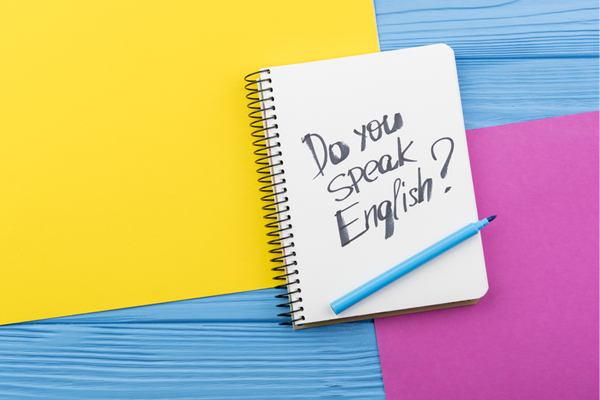 Do you
speak
English?